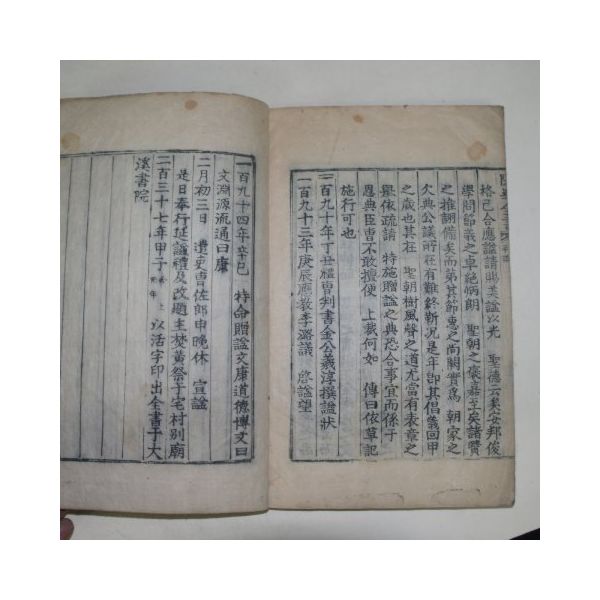 格已合應諡請賜美諡以光　聖德云矣安邦俊
學問節義之卓絶炳朗　聖朝之褒嘉至矣諸賢
之推詡備矣而第其節惠之尚闕實爲　朝家之
欠典公議所在有難終靳況是年卽其倡義回甲
之歲也其在　聖朝樹風聲之道尤當有表章之
擧依疏請　特施贈諡之典恐合事宜而係于
恩典臣曺不敢擅便　上裁何如　傳曰依草記
施行可也
一百九十年丁丑禮曺判書金公羲淳撰諡狀
一百九十三年庚辰應敎李潞議　啓諡望
一百九十四年辛巳　特命贈諡文康道德博文曰
文淵源流通曰康
二月初三日　遣吏曺佐郎申晩休　宣諡
是日奉行延諡禮及改題主焚黃祭于宅村別廟
二百三十七年甲子　上元年　以活字印出全書于大
溪書院